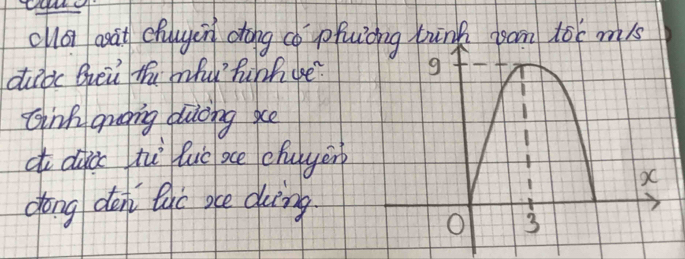 Câu 3
Một vật chuyển động có phương trình vận tốc m/s
được biểu thị như hình vẽ.
Tính quãng đường xe
đi được từ lúc xe chuyển
động đến lúc xe dừng.
9
x
0
3